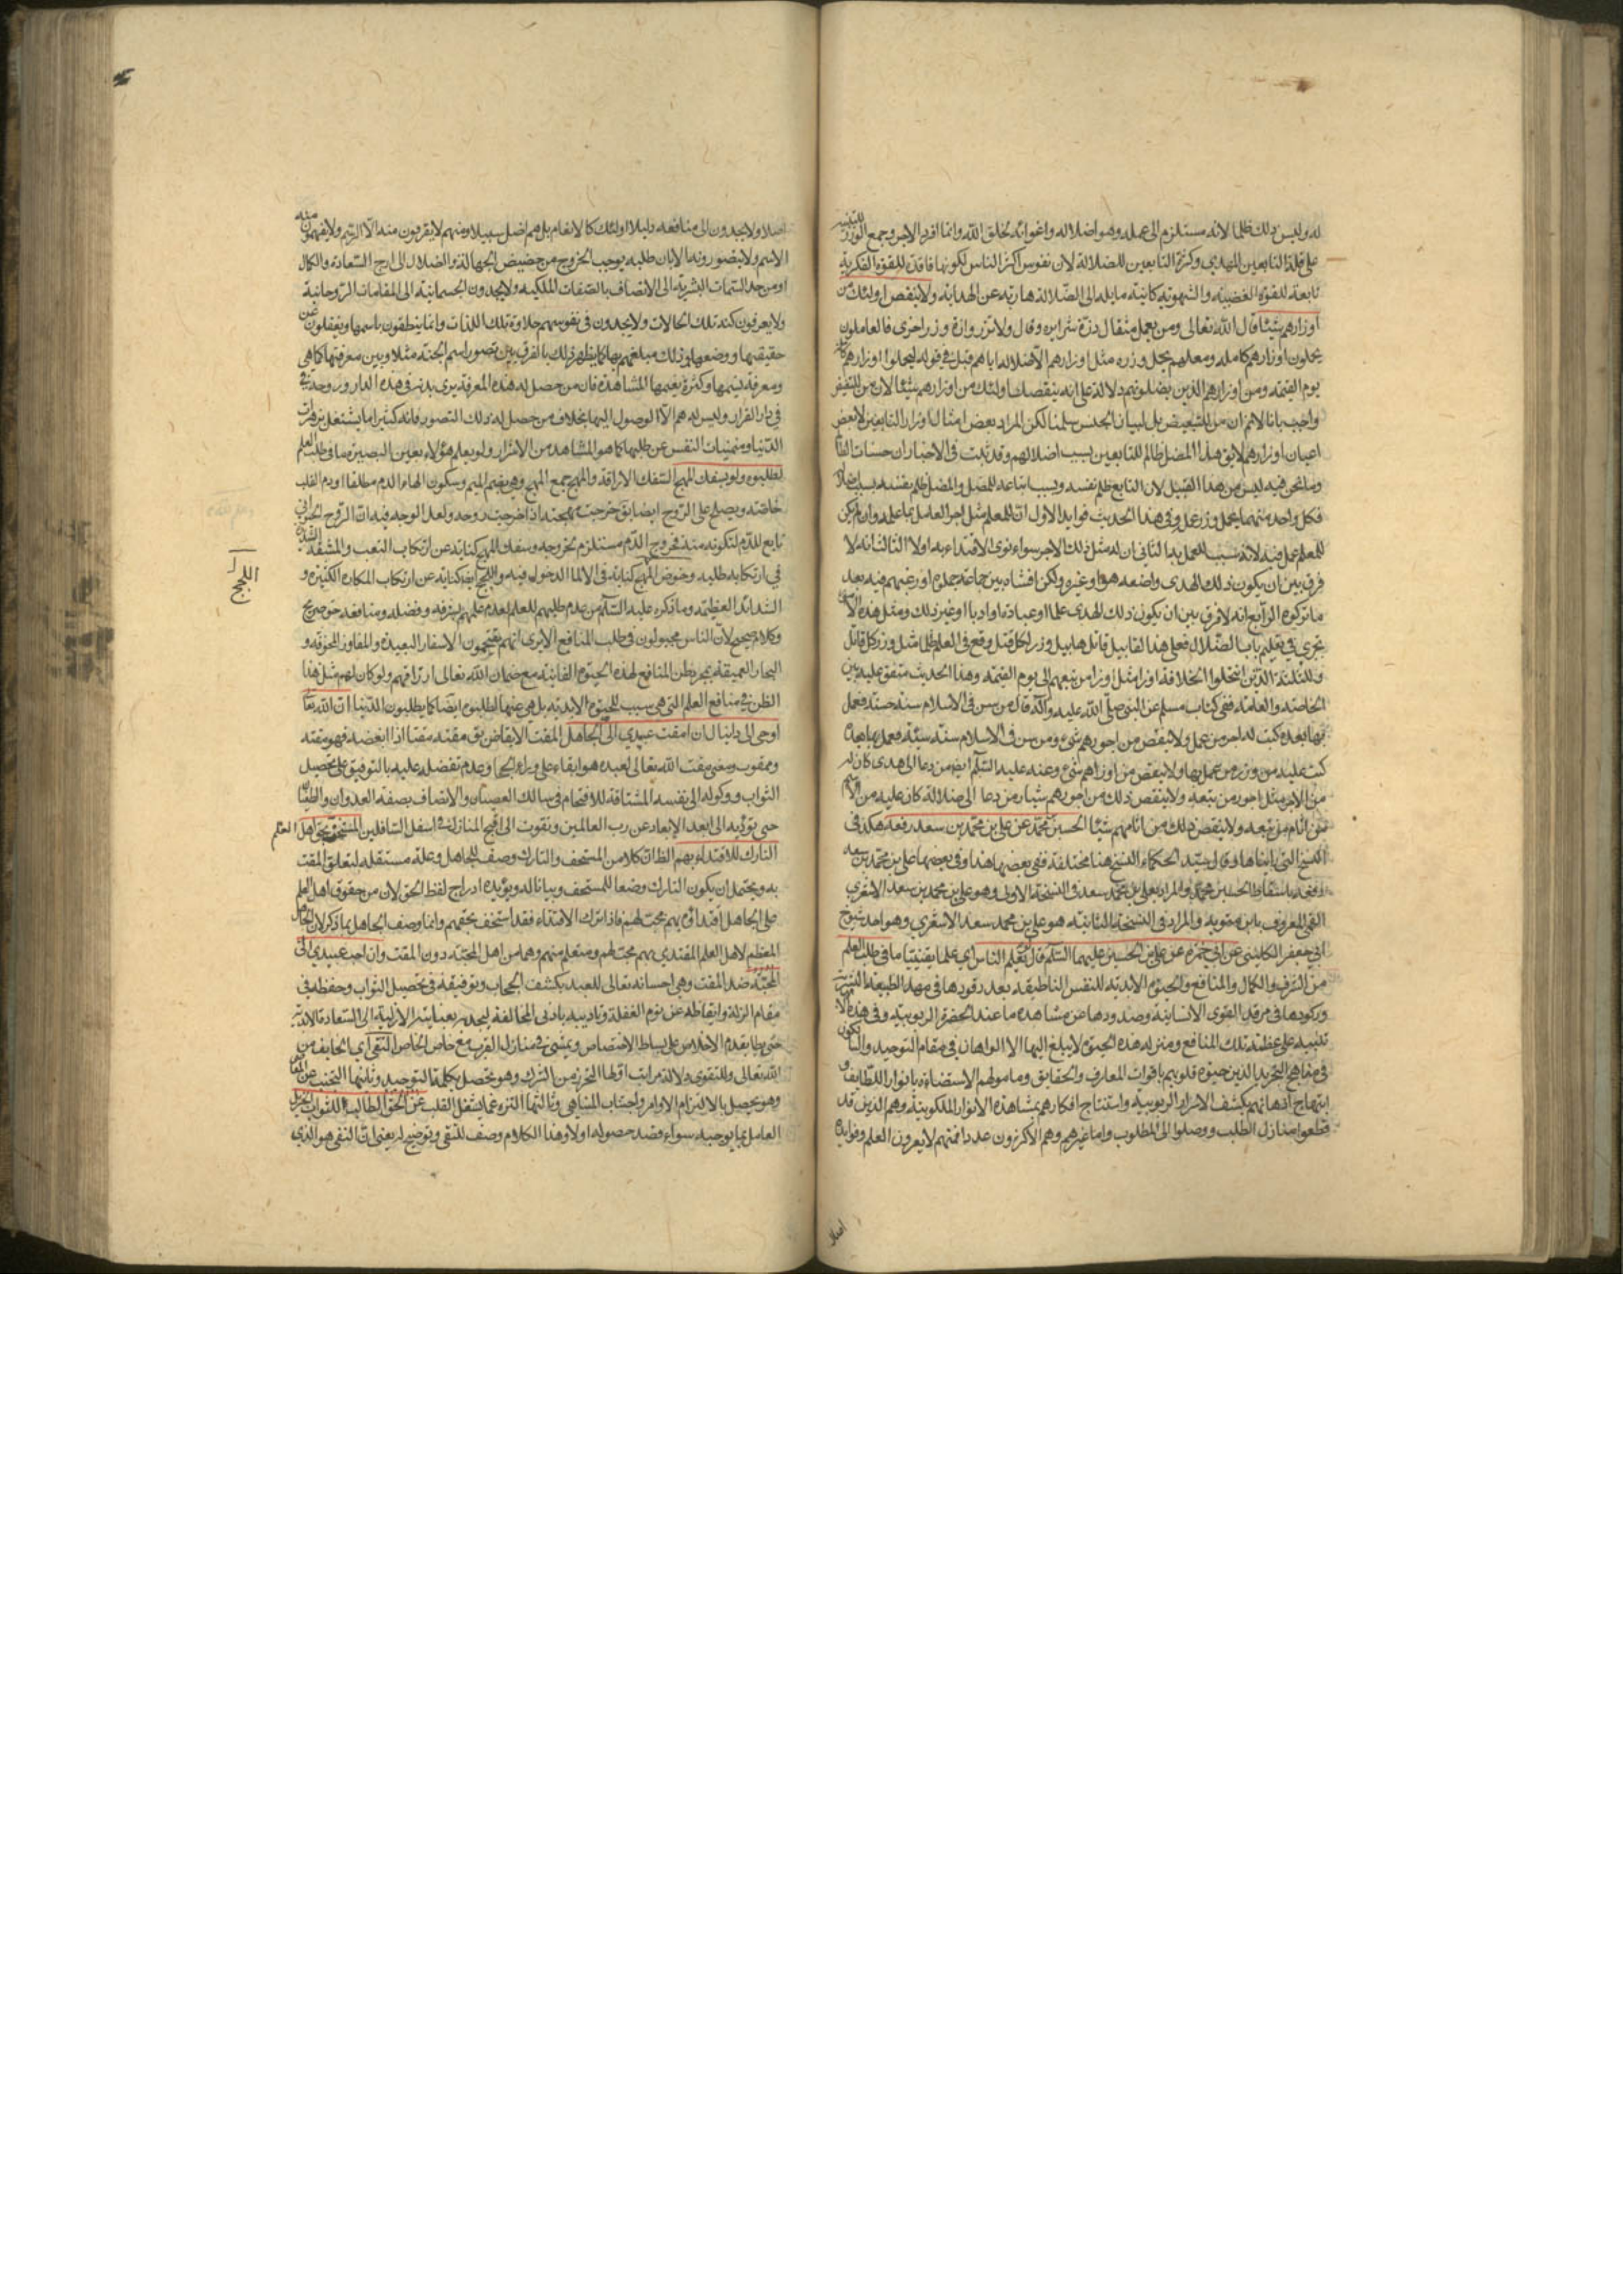 له وليس ذلك ظلما لانه مستلزم الى عمله وهو اضلاله واغوائه لخلق الله وانما افرد الاجر وجمع الوزر للتنبيه
على قلة التابعين للهدى وكثرة التابعين للضلالة لان نفوس اكثر الناس لكونها فاقدة للقوة الفكرية
تابعة للقوة الغضبية والشهوية كانت مايلة الى الضلالة هاربة عن الهداية ولا ينقص اولئك من
اوزارهم شيئا قال الله تعالى ومن يعمل مثقال ذرة شرا يره وقال ولا تزر وازرة وزر اخرى فالعاملون
يحملون اوزارهم كاملة ومعلمهم يحمل وزره مثل اوزارهم لاضلاله اياهم قيل في قوله ليحملوا اوزارهم كاملة
يوم القيمة ومن اوزار الذين يضلونهم دلالة على انه ينقص اولئك من اوزارهم شيئا لان من للتبعيض
واجيب بانا لا نم ان من للتبعيض بل لبيان الجنس سلمنا لكن المراد بعض امثال اوزار التابعين لا بعض
اعيان اوزارهم لا يق هذا المضل ظالم للتابعين بسبب اضلالهم وقد ثبت في الاخبار ان حسنات الظالم
وما نحن فيه ليس من هذا القبيل لان التابع ظلم نفسه وبسبب متابعة للمضل والمضل ظلم نفسه بسبب اضلاله
فكل واحد منهما يحمل وزر عمله وفي هذا الحديث فوايد الاول ان للمعلم مثل اجر العامل بما علمه وان لم يكن
للمعلم عمل فيه لانه سبب للعمل به الثاني ان له مثل ذلك الاجر سواء نوى الاقتداء به اولا الثالث انه لا
فرق بين ان يكون ذلك الهدى واضعه هو او غيره ولكن افشاه بين جماعة جهلوه او رغبهم فيه بعد
ما تركوه الرابع انه لا فرق بين ان يكون ذلك الهدى علما او عبادة او ادبا او غير ذلك ومثل هذه الامور
يجري في تعليم باب الضلال فعلى هذا لقابيل قاتل هابيل وزر لكل قتل وقع في العلم ظلما مثل وزر كل قاتل
وللثلثة الذين انتحلوا الخلافة اوزار مثل اوزار من تبعهم الى يوم القيمة وهذا الحديث متفق عليه بين
الخاصة والعامة ففي كتاب مسلم عن النبي صلى الله عليه وآله قال من سن في الاسلام سنة حسنة فعمل
بها بعده كتب له اجر من عمل ولا ينقص من اجورهم شئ ومن سن في الاسلام سنة سيئة فعمل بها بعده
كتب عليه من وزر من عمل بها ولا ينقص من اوزارهم شئ وعنه عليه السلام ايضا من دعا الى هدى كان له
من الاجر مثل اجور من تبعه ولا ينقص ذلك من اجورهم شيئا ومن دعا الى ضلالة كان عليه من الاثم
مثل آثام من تبعه ولا ينقص ذلك من آثامهم شيئا الحسين بن محمد عن علي بن محمد بن سعد رفعه هكذا في
النسخ التي رايناها وقال سيد الحكماء النسخ هنا مختلفة ففي بعضها هذا وفي بعضها علي بن محمد بن سعد
رفعه باسقاط الحسين بن محمد والمراد بعلي بن محمد بن سعد في النسخة الاولى وهو علي بن محمد بن سعد الاشعري
القمي المعروف بابن متويه والمراد في النسخة الثانية هو علي بن محمد سعد الاشعري وهو احد شيوخ
ابي جعفر الكليني عن ابي حمزة عن علي بن الحسين عليهما السلام قال لو يعلم الناس اي علما يقينيا ما في طلب العلم
من الشرف والكمال والمنافع والحيوة الابدية للنفس الناطقة بعد رقودها في مهد الطبيعة البشرية
وركودها في مرقد القوى الانسانية وصدودها عن مشاهدة ما عند الحضرة الربوبية وفي هذه
تنبيه على عظمة تلك المنافع ومنزلة هذه الحيوة لا يبلغ اليها الا الواهان في مقام التوحيد
في مناهج التجريد الذين حيوة قلوبهم باقوات المعارف والحقايق ومامولهم الاستضاءة بانوار اللطايف و
ابتهاج اذهانهم بكشف الاسرار الربوبية واستنتاج افكارهم بمشاهدة الانوار الملكوتية وهم الذين قد
قطعوا منازل الطلب ووصلوا الى المطلوب واما غيرهم وهم الاكثرون عددا فمنهم لا يعرفون العلم وفوايده
اصلا
اصلا ولا يجدون الى منافعه دليلا اولئك كالانعام بل هم اضل سبيلا ومنهم لا يعرفون منه الا الرسم ولا يفهمون منه
الاسم ولا يتصورونه الا بان طلبه يوجب الخروج من حضيض الجهالة والضلال الى اوج السعادة والكمال
او من حد السمات البشرية الى الاتصاف بالصفات الملكية ولا يجدون الجسمانية الى المقامات الروحانية
ولا يعرفون كنه تلك الحالات ولا يجدون في نفوسهم حلاوة تلك اللذات وانما ينطقون باسمها ويغفلون عن
حقيقتها ووضعها وذلك مبلغهم بها كما يظهر ذلك بالفرق بين تصور اسم الجنة مثلا وبين معرفتها كما هي
ومعرفة نسيمها وكثرة نعيمها المشاهدة فان من حصل له هذه المعرفة يرى بدنه في هذه الدار وروحه
في دار القرار وليس له هم الا الوصول اليها بخلاف من حصل له ذلك التصور فانه كثيرا ما يشتغل بزهرات
الدنيا ومنهيات النفس عن طلبها كما هو المشاهد من الاشرار ولو يعلم هؤلاء بعين البصيرة ما في طلب العلم
لطلبوه ولو بسفك المهج السفك الاراقة والمهج جمع المهجة وهي بضم الميم وسكون الهاء الدم مطلقا او دم القلب
خاصة ويصلح على الروح ايضا يق خرجت مهجته اذا خرجت روحه ولعل الوجه فيه ان الروح الحيواني
تابع للدم لتكونه منه فخروج الدم مستلزم لخروجه وسفك المهج كناية عن ارتكاب التعب والمشقة الشديدة
في ارتكابه طلبه وخوض اللجج كناية في الالما الدخول فيه واللجج ايضا كناية عن ارتكاب المكاره الكثيرة و
الشدائد العظيمة وما ذكره عليه السلام من عدم طلبهم للعلم لعدم علمهم بشرفه وفضله ومنافعه حق صريح
وكلام صحيح لان الناس مجبولون في طلب المنافع الا ترى انهم يقتحمون الاسفار البعيدة والمفاوز المخوفة و
البحار العميقة بمجرد ظن المنافع لهذه الحيوة الفانية مع ضمان الله تعالى ارزاقهم ولو كان لهم مثل هذا
الظن في منافع العلم التي هي سبب للحيوة الابدية بل هي عينها لطلبوه ايضا كما يطلبون الدنيا ان الله تعالى
اوحى الى دانيال ان امقت عبيدي الى الجاهل المقت الابغاض يق مقته مقتا اذا ابغضه فهو مقته
وممقوت ومعنى مقت الله تعالى لعبده هو ابقاءه على وراء الحجاب وعدم تفضله عليه بالتوفيق على تحصيل
الثواب ووكوله الى نفسه المشتاقة للاقتحام في مسالك العصيان والاتصاف بصفة العدوان والطغيان
حتى يؤديه الى ابعد الابعاد عن رب العالمين ويقوت الى اقبح المنازل في اسفل السافلين المستخف بحق اهل العلم
التارك للاقتداء بهم الظاهر ان كلا من المستخف والتارك وصف للجاهل وعلة مستقلة لتعلق المقت
به ويحتمل ان يكون التارك وضعا للمستخف وبيانا له ويؤيده ادراج لفظ الحق لان من حقوق اهل العلم
على الجاهل اقتداؤه بهم محبة لهم فاذا ترك الاقتداء فقد استخف بحقهم وانما وصف الجاهل بما ذكر لان الجاهل
المعظم لاهل العلم المقتدي بهم محب لهم ومتعلم منهم وهما من اهل المحبة دون المقت وان احب عبيدي الى
المحبة ضد المقت وهي احسانه تعالى للعبد بكشف الحجاب وتوفيقه في تحصيل الثواب وحفظه في
مقام الزلة وايقاظه عن نوم الغفلة وتاديبه بادنى المخالفة ليجد به بعنايته الازلية الى السعادة الابدية
حتى يطا بقدم الاخلاص على بساط الاختصاص ويمشي في منازل القرب مع خاص الخاص التقي اي الخايف من
الله تعالى وللتقوى دلالة مراتب اولها التحرز من الشرك وهو يحصل بكلمة التوحيد وثانيها التجنب عن المعاصي
وهو يحصل بالالتزام الاوامر واجتناب المناهي وثالثها التنزه عما يشغل القلب عن الحق الطالب للثواب الجزيل
العامل بما يوجبه سواء قصد حصوله اولا وهذا الكلام وصف للتقي وتوضيح له يعني ان التقي هو الذي
اللجج